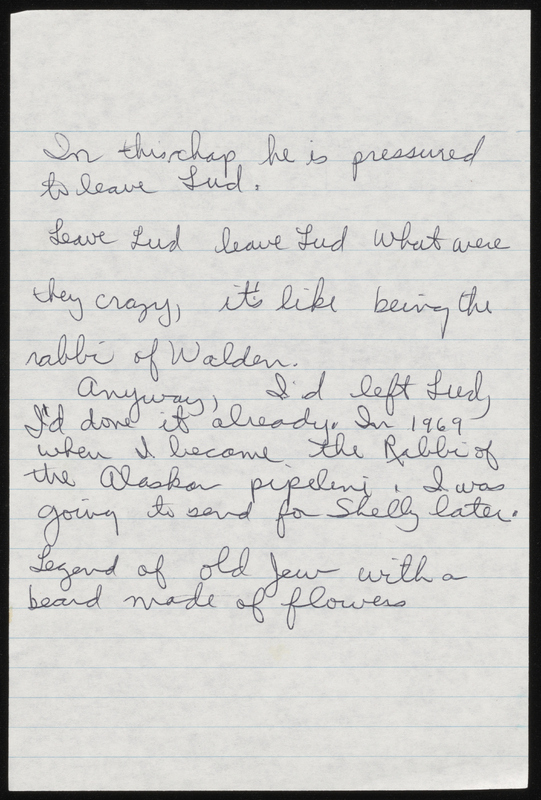 In this chap he is pressured
to leave Lud.
Leave Lud leave Lud What were
they crazy, it's like being the
rabbi of Walden.
Anyway, I'd left Lud,
I'd done it already. In 1969
when I became the Rabbi of
the Alaskan pipeline. I was
going to send for Shelly later.
Legend of old Jew with a
beard made of flowers